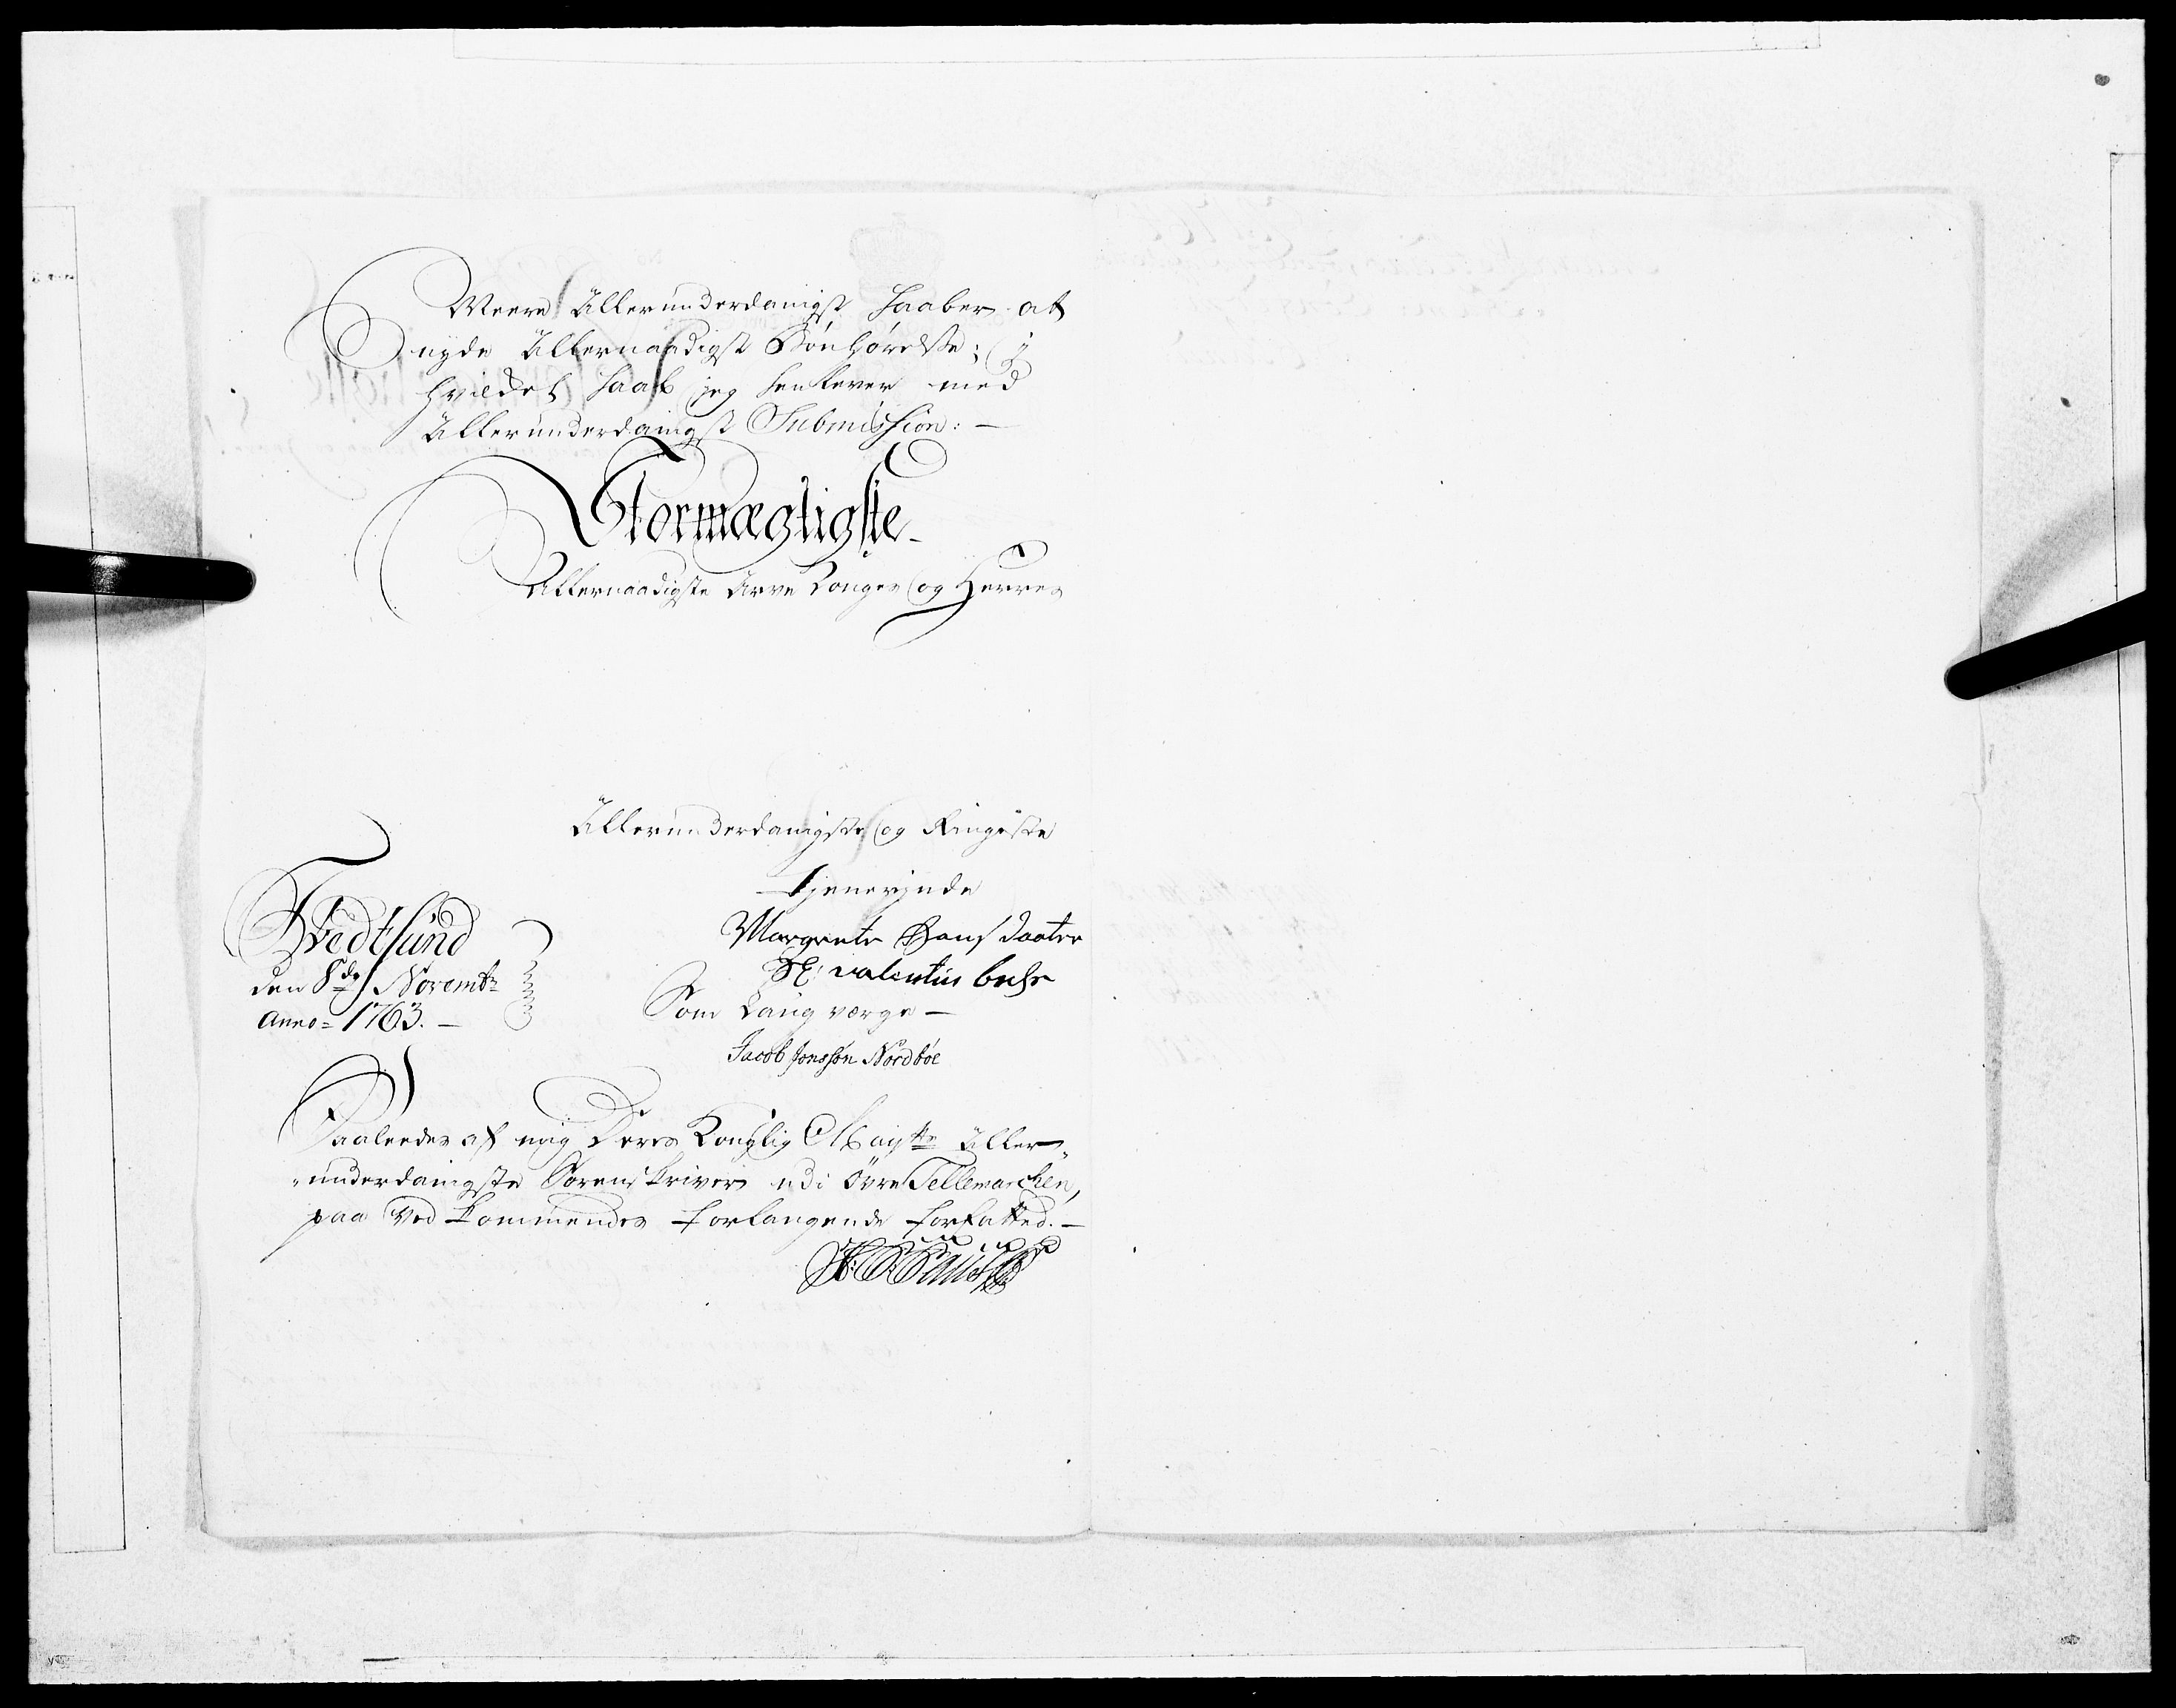 Meere Allerunderdanigst haaber at
nyde Allernaadigst Bønhørelse; i
hvildet haab jeg henlever med
Allerunderdanigst Submission: —
Stormægtigste
Allernaadigste Arve Konges og Herres
Allerunderdanigste og Ringeste
Tjenerinde
Margrete Hans daater
Sl: valentin behr
Som Laug værge —
Jacob Jonssøn Nordbøe
Tvedtsund
den 8de Novembr
Anno = 1763. —
Saaledes af mig Deres Konglig Mayts Aller„
„underdanigste Sorenskriver udi Øvre Tellemarchen,
paa Vedkommendes forlangende forfatted. —